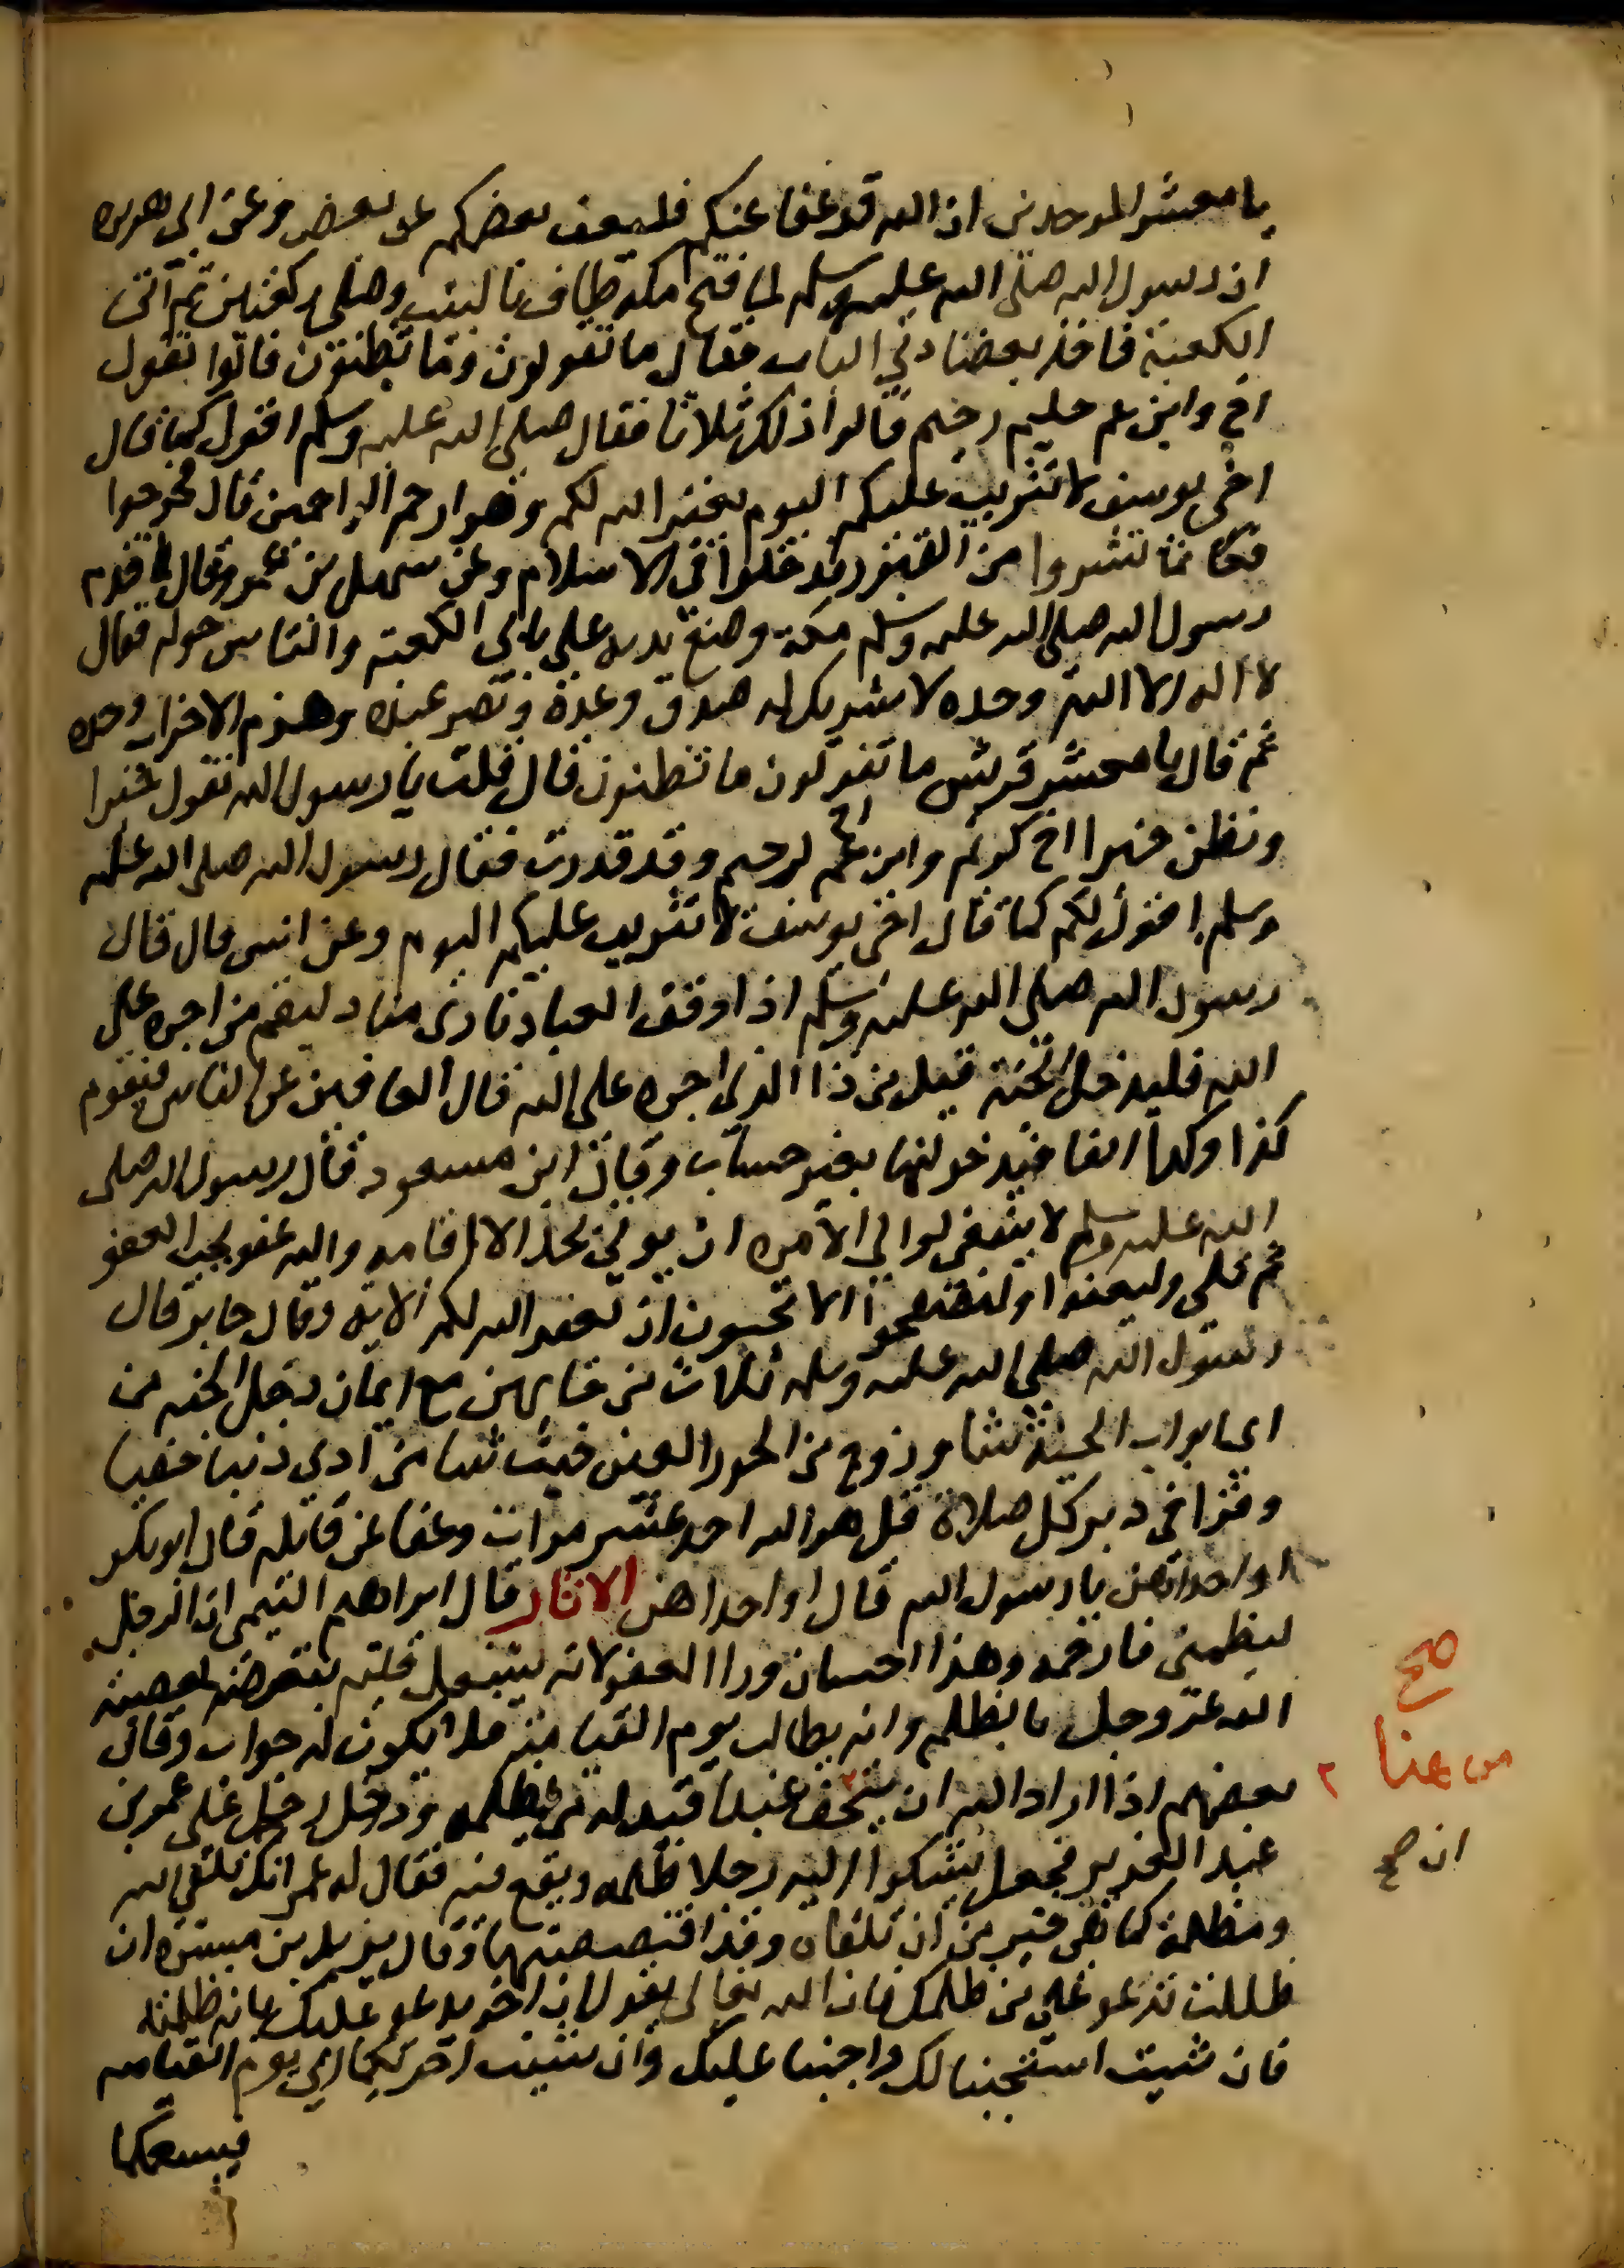 يا معشر الموحدين ان الله قد عفا عنكم فليعف بعضكم عن بعض وعن ابي هريره
ان رسول الله صلى الله عليه وسلم لما فتح مكه طاف بالبيت وصلى ركعتين ثم اتى
الكعبة فاخذ بعضادتي الباب فقال ما تقولون وما تظنون قالوا نقول
اخ وابن عم حليم رحيم قالوا ذلك ثلاثا فقال صلى الله عليه وسلم اقول كما قال
اخي يوسف لا تثريب عليكم اليوم يغفر الله لكم وهو ارحم الراحمين قال فخرجوا
فكانما نشروا من القبور فدخلوا في الاسلام وعن سهيل بن عمرو قال لما قدم
رسول الله صلى الله عليه وسلم مكة وضع يديه على بابي الكعبة والناس حوله فقال
لا اله الا الله وحده لا شريك له صدق وعده ونصر عبده وهزم الاحزاب وحده
ثم قال يا معشر قريش ما تقولون ما تظنون قال قلت يا رسول الله نقول خيرا
ونظن خيرا اخ كريم وابن اخ عم رحيم وقد قدرت فقال رسول الله صلى الله عليه
وسلم اقول لكم كما قال اخي يوسف لا تثريب عليكم اليوم وعن انس قال قال
رسول الله صلى الله عليه وسلم اذا وقف العباد نادى مناد ليقم من اجره على
الله فليدخل الجنة قيل من ذا الذي اجره على الله قال العافين عن الناس فيقوم
كذا وكذا الفا فيدخلونها بغير حساب وقال ابن مسعود قال رسول الله صلى
الله عليه وسلم لا ينبغي لوالي الامره ان يوتى بحد الا اقامه والله عفو يحب العفو
ثم تلى وليعفوا وليصفحوا الا تحبون ان يغفر الله لكم الاية وقال جابر قال
رسول الله صلى الله عليه وسلم ثلاث من جا بهن مع ايمان دخل الجنه من
اي ابواب الجنة شا وزوج من الحور العين حيث شا من ادى دينا خفيا
وقرا في دبر كل صلاة قل هو الله احد عشر مرات وعفا عن قاتله قال ابو بكر
او احداهن يا رسول الله قال او احداهن الاثار قال ابراهيم التيمي ان الرجل
ليظلمني فارحمه وهذا احسان ورا العفو لانه يشتغل قلبه بتعرضه لمعصية
الله عز وجل بالظلم وانه يطالب يوم القيامة فلا يكون له جواب وقال
بعضهم اذا اراد الله ان يتحف عبدا قيد له من يظلمه ودخل رجل على عمر بن
عبد العزيز فجعل يشكوا اليه رجلا ظلمه ويقع فيه فقال له عمر انك تلقى الله
ومظلمتك كما هي خير من ان تلقاه وقد اقتصصتها وقال يزيد بن ميسرة ان
ظللت تدعو على من ظلمك فان الله تعالى يقول ان اخر يدعو عليك بانه ظلمته
فان شيت استجبنا لك واجبنا عليك وان شيت اخرتكما الى يوم القيامه
فيسعكما
صح
من هنا ٢
ان صح